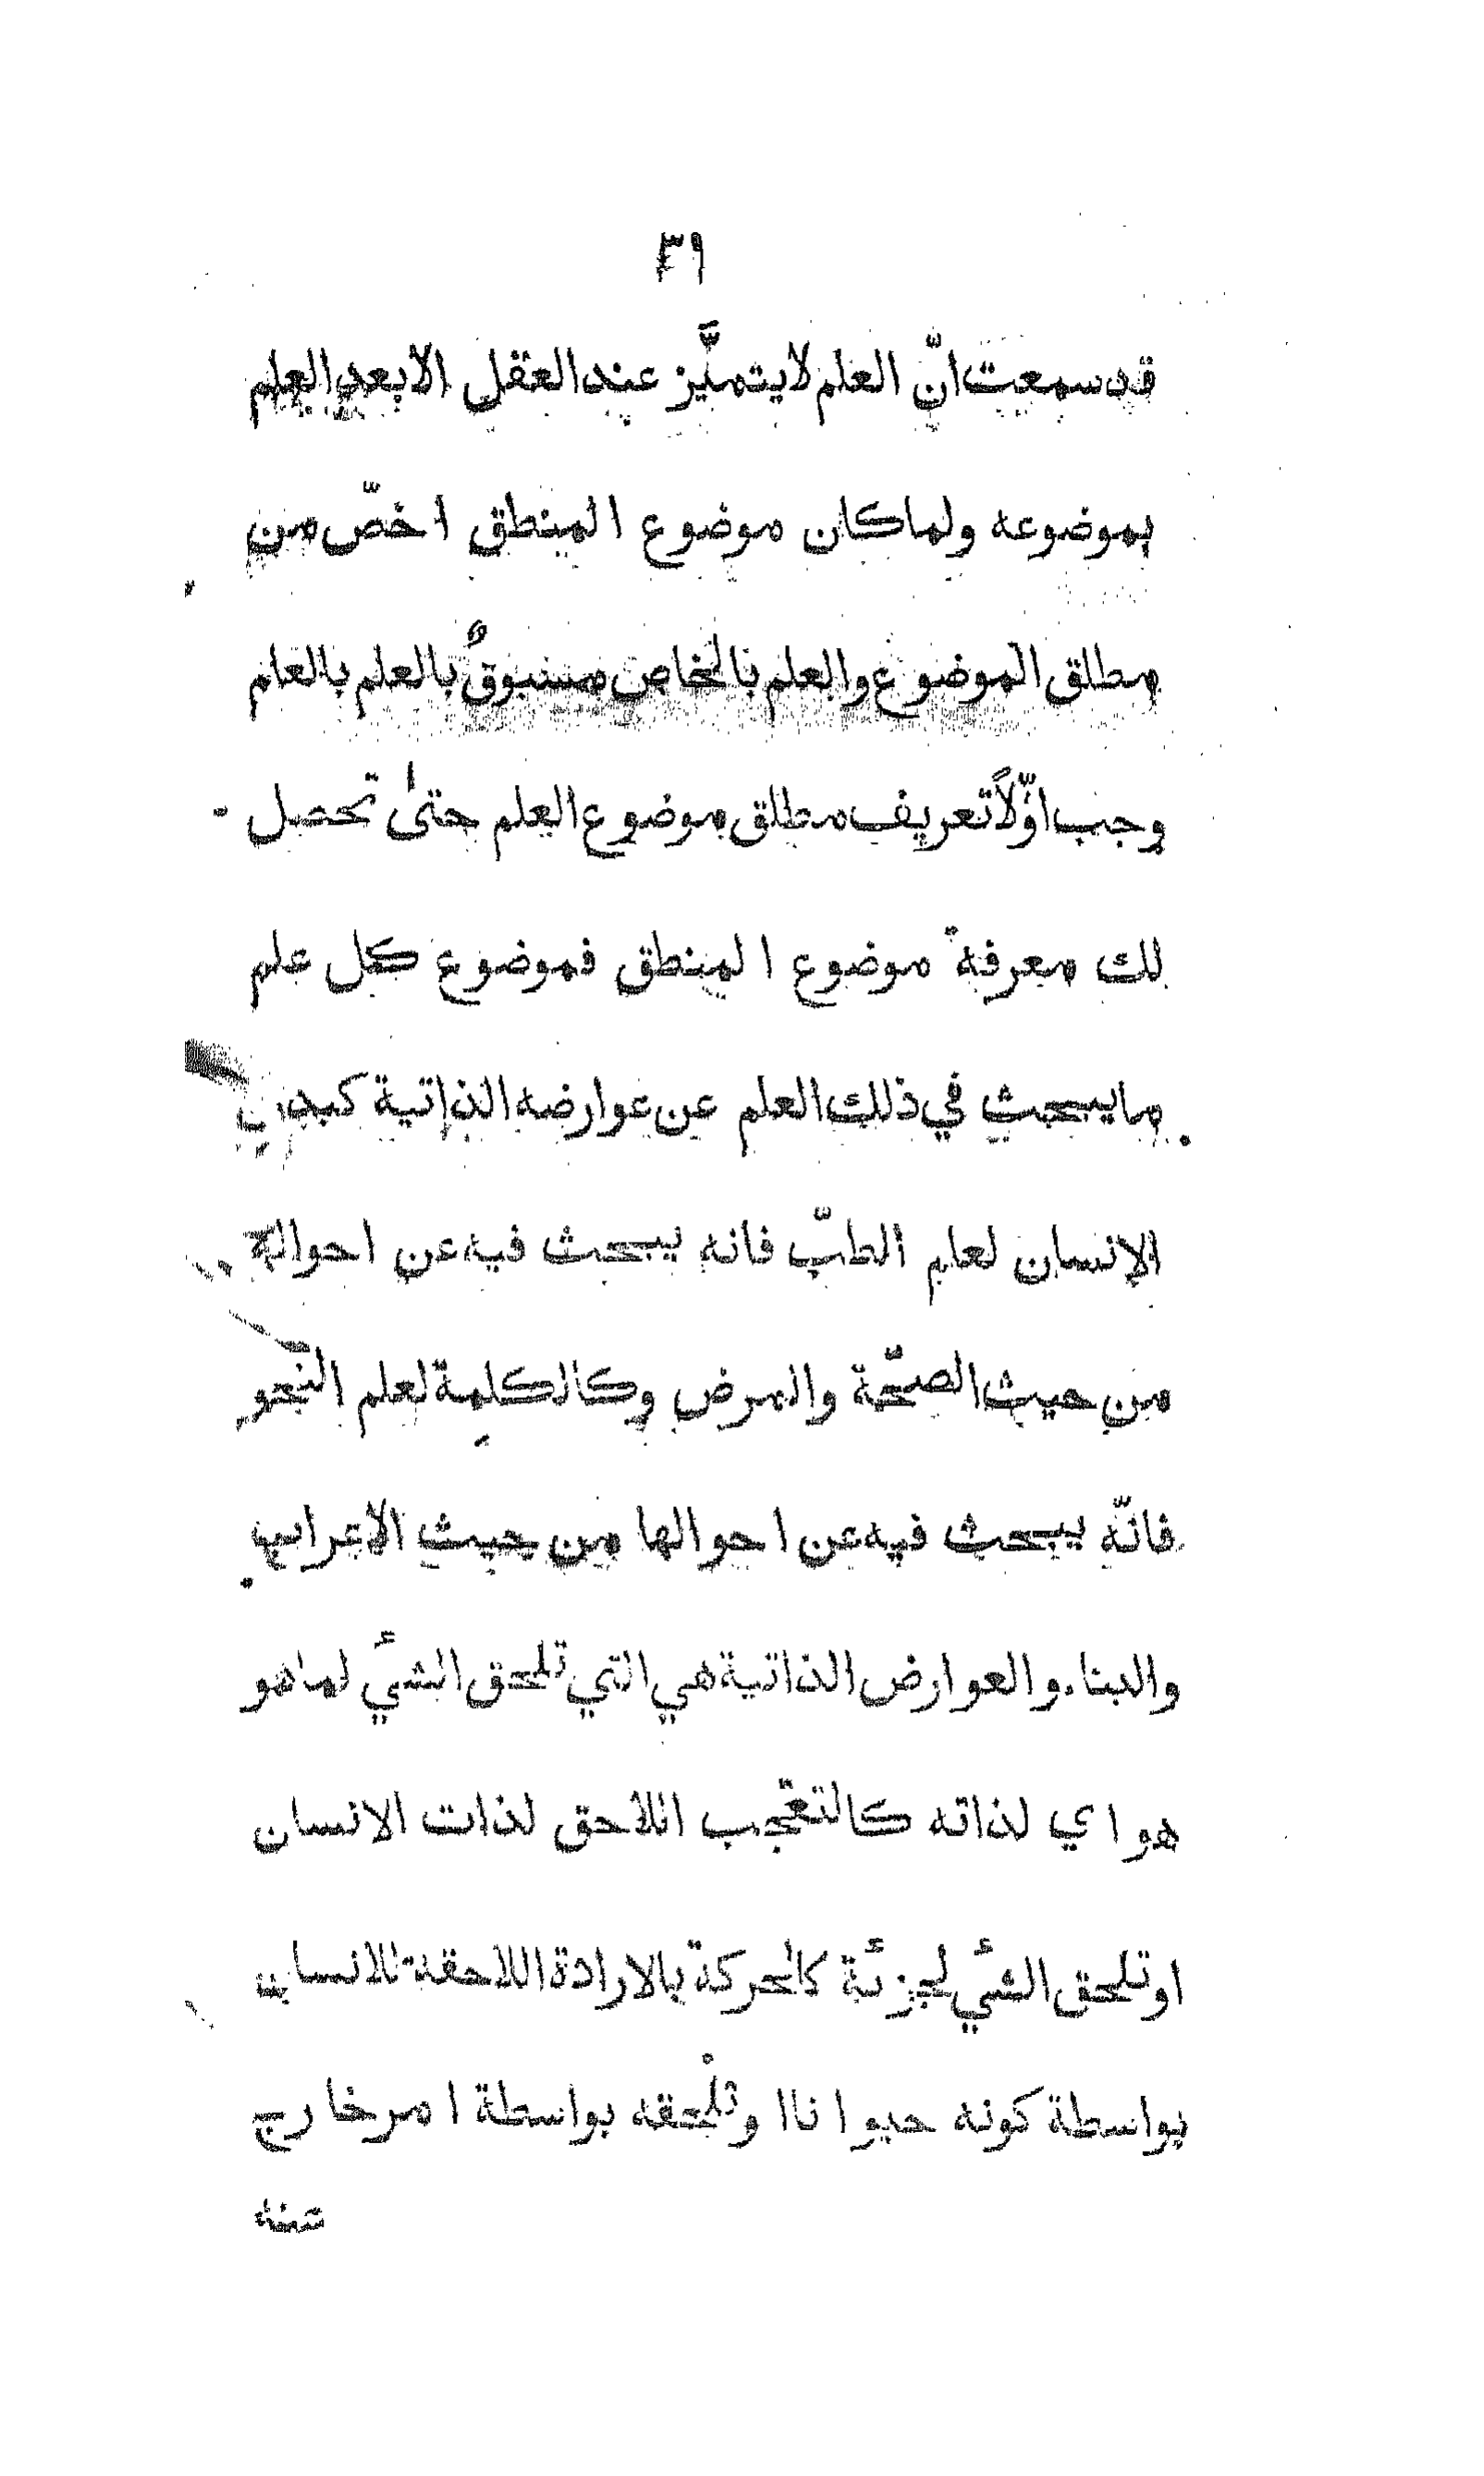 ٣٩
قد سمعت انّ العلم لا يتميَّز عند العقل الا بعد العلم
بموضوعه ولما كان موضوع المنطق اخصّ من
مطلق الموضوع والعلم بالخاص مسبوقٌ بالعلم بالعام
وجب اوّلاً تعريف مطلق موضوع العلم حتىٰ تحصل
لك معرفة موضوع المنطق فموضوع كل علم
ما يبحث في ذلك العلم عن عوارضه الذاتية كبدن
الانسان لعلم الطبّ فانه يبحث فيه عن احواله
من حيث الصحّة والمرض وكالكلمة لعلم النحو
فانّه يبحث فيه عن احوالها من حيث الاعراب
والبناء والعوارض الذاتية هي التي تلحق الشئ لما هو
هو اي لذاته كالتعجّب اللاحق لذات الانسان
او تلحق الشئ لجزئة كالحركة بالارادة اللاحقة للانسان
بواسطة كونه حيوانا او تلْحقه بواسطة امر خارج
عنه